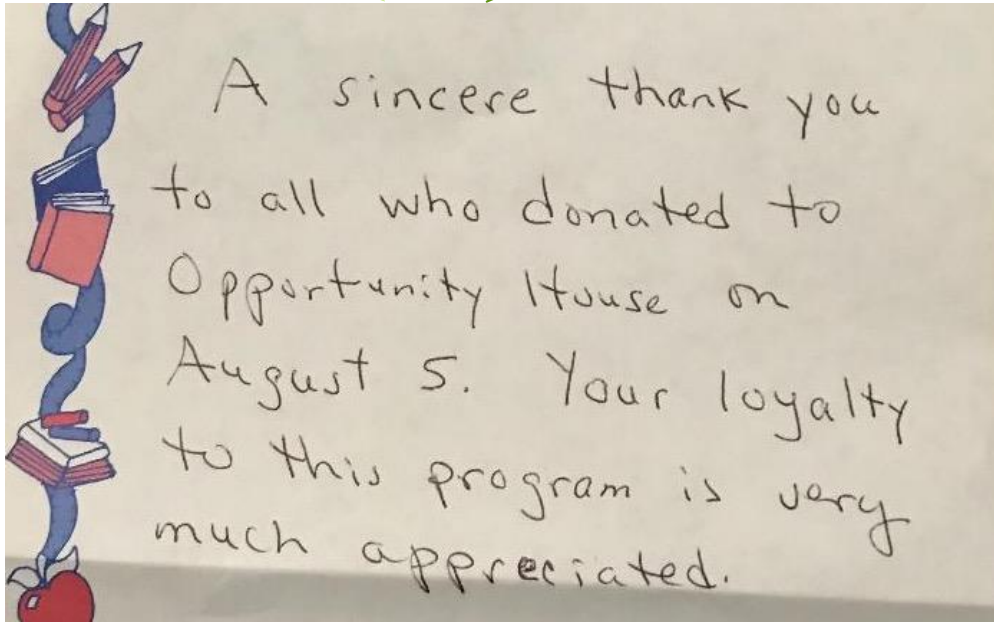 A sincere thank you
to all who donated to
Opportunity House on
August 5. Your loyalty
to this program is very
much appreciated.